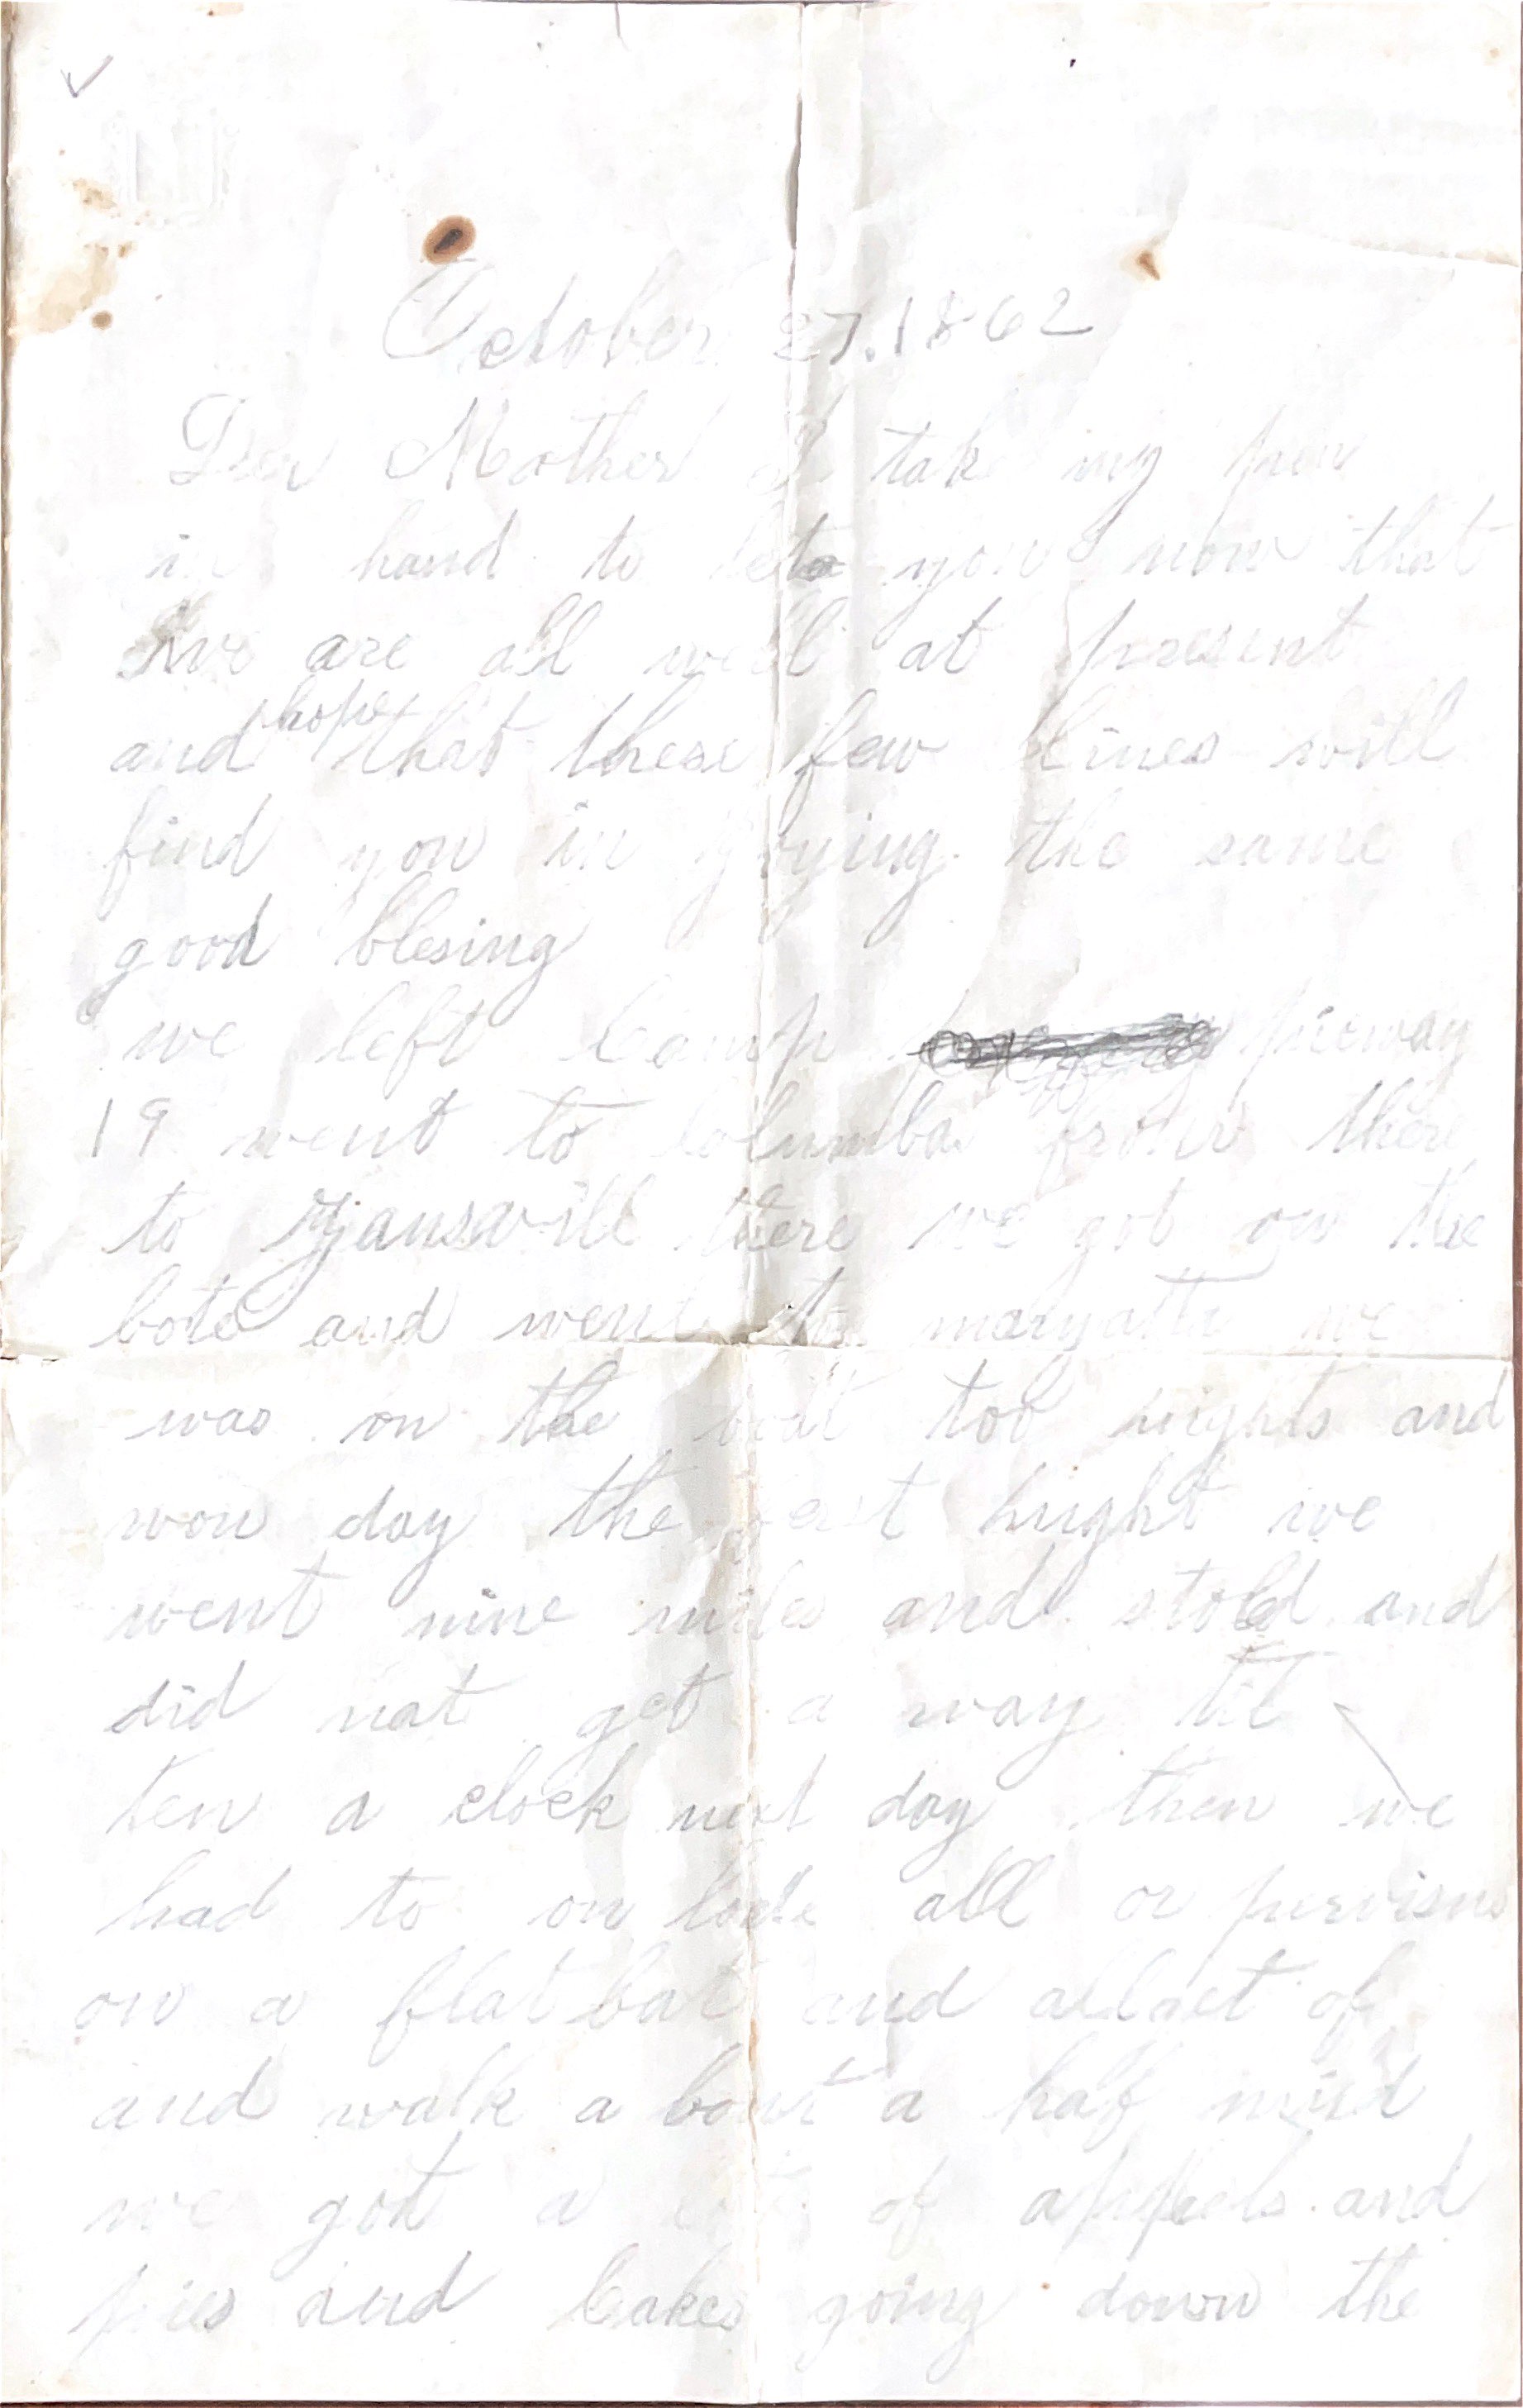 October 27.1862
Dear Mother I take my pen
in hand to let you now that
we are all well at present
and hope that these few lines will
find you in joying the same
good blesing
we left Camp pieway
19 went to Columba from there
to there we got on the
bote and went to maryatta we
was on the boat too nights and
won day the hught we
went nine miles and stold and
did nat get a way til
ten a clock next day then we
had to on lode all or purvisns
on a flat bat and all of
and walk a bout a haf
we got a of appels and
pies and Cakes going down the